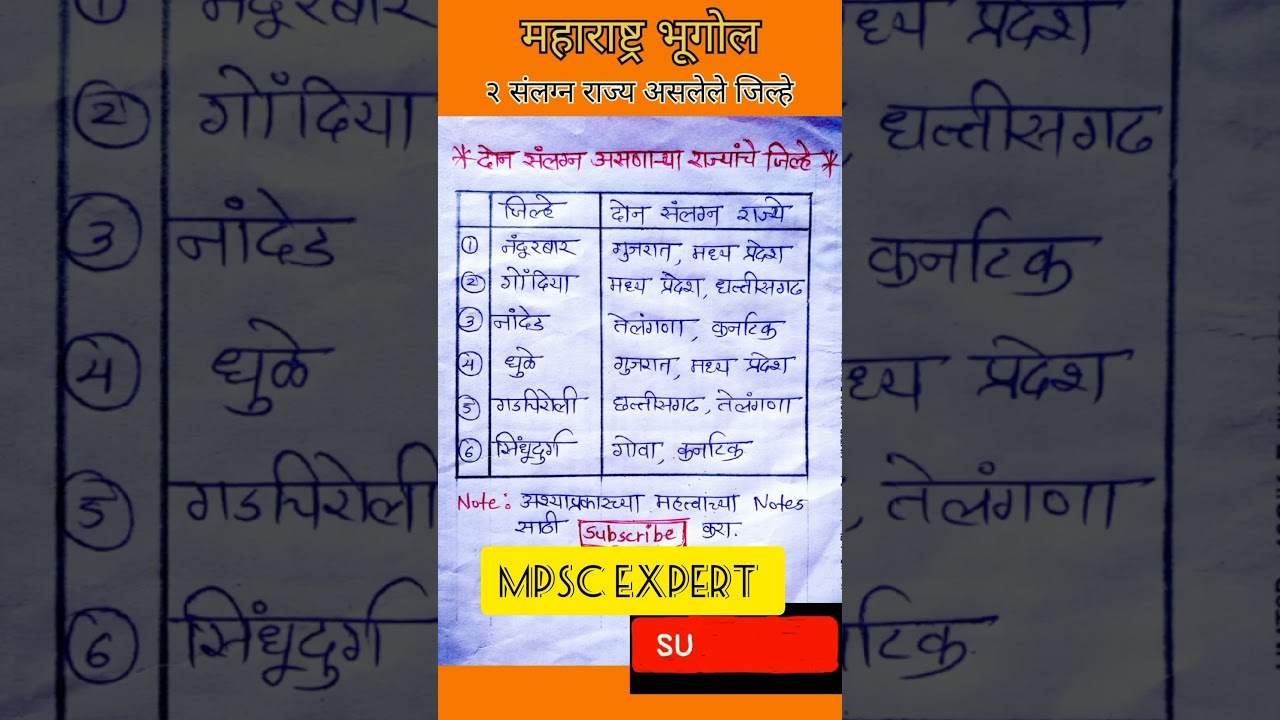 महाराष्ट्र भूगोल
२ संलग्न राज्य असलेले जिल्हे
* दोन संलग्न असणाऱ्या राज्यांचे जिल्हे *
जिल्हे दोन संलग्न राज्ये
① नंदूरबार गुजरात, मध्य प्रदेश
② गोंदिया मध्य प्रदेश, छत्तीसगढ
③ नांदेड तेलंगणा, कर्नाटक
④ धुळे गुजरात, मध्य प्रदेश
⑤ गडचिरोली छत्तीसगढ, तेलंगणा
⑥ सिंधूदुर्ग गोवा, कर्नाटक
Note: अश्याप्रकारच्या महत्वाच्या Notes
साठी Subscribe करा.
MPSC EXPERT
SU